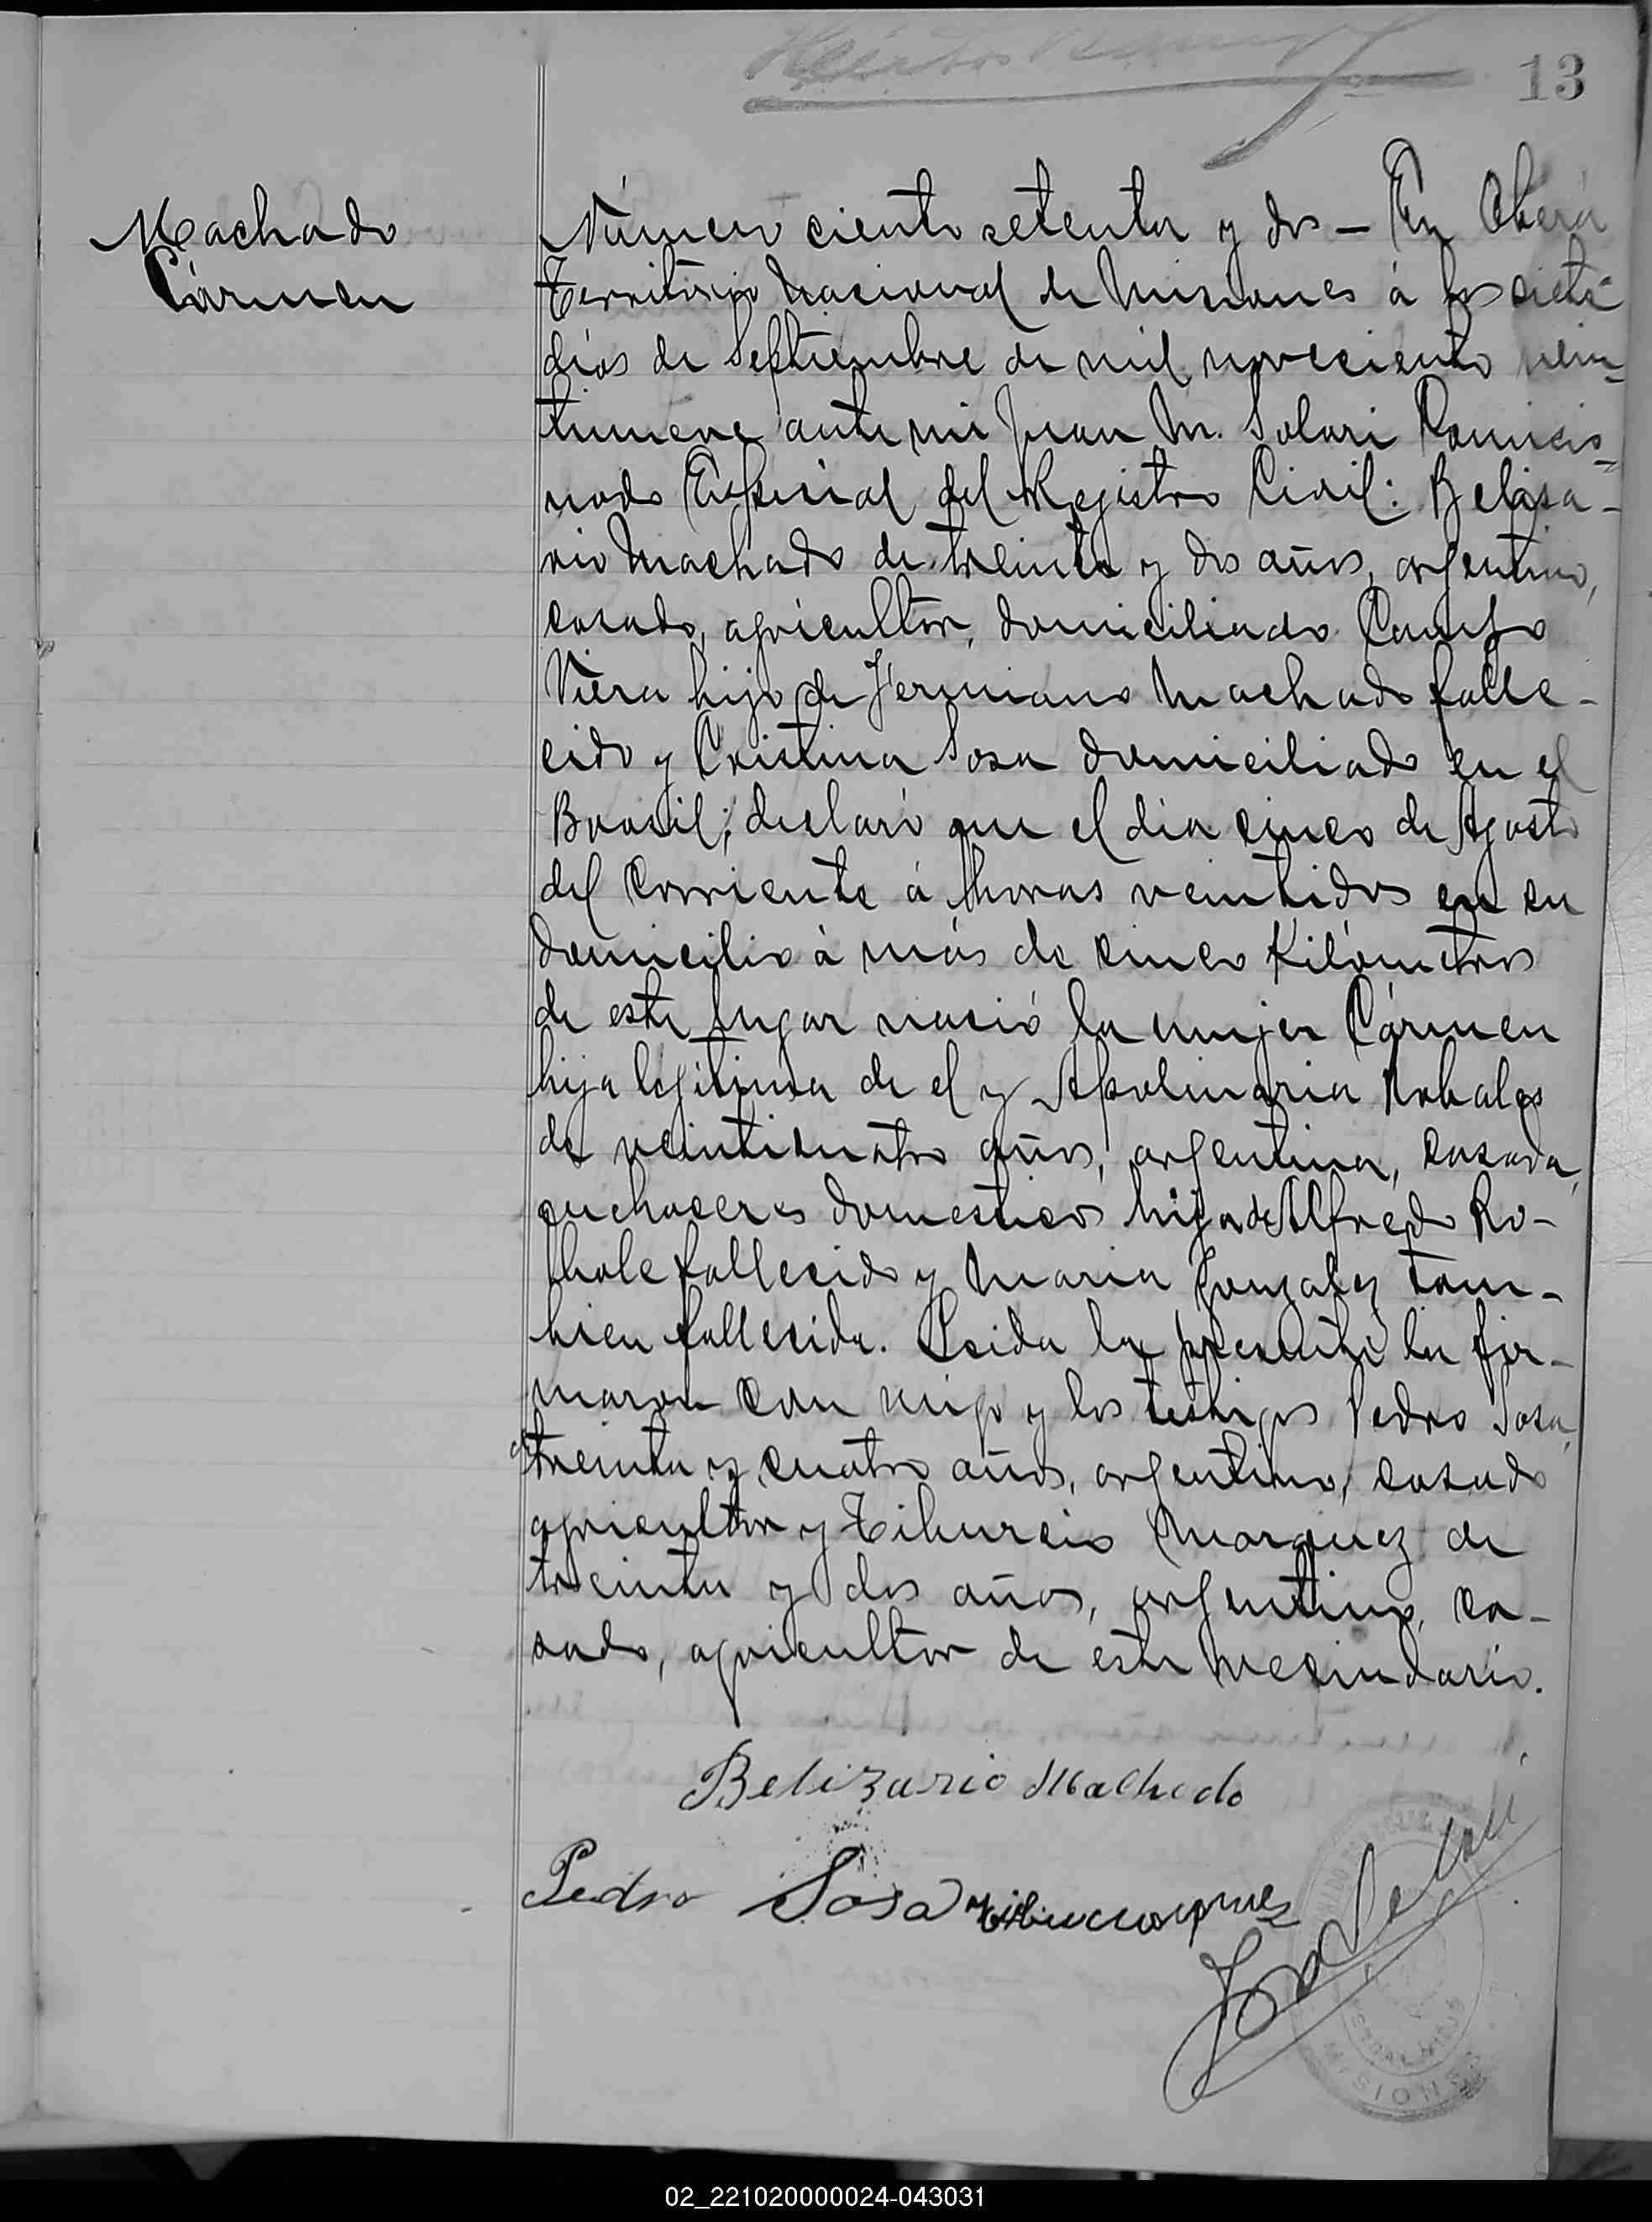 13
Machado
Cármen
Número ciento setenta y dos – En Oberá
Territorio Nacional de Misiones á los siete
días de Septiembre de mil novecientos vein-
tinueve ante mi Juan M. Solari Comisio-
nado Especial del Registro Civil: Belisa-
rio Machado de treinta y dos años, argentino,
casado, agricultor, domiciliado Campo
Viera hijo de Jermiano Machado falle-
cido y Cristina Sosa domiciliado en el
Brasil; declaró que el dia cinco de Agosto
del corriente á horas veintidos en su
domicilio á más de cinco Kilómetros
de este lugar nació la mujer Cármen
hija legitima de el y Apolinaria Robales
de veinticuatro años, argentina, casada,
quehaceres domesticos hija de Alfredo Ro-
bale fallecido y Maria Gonzalez tam-
bien fallecida. Leida la presente la fir-
maron con migo y los testigos Pedro Sosa,
de treinta y cuatro años, argentino, casado
agricultor y Tiburcio Marquez de
treinta y dos años, argentino, ca-
sado, agricultor de este vecindario.
Belizario Machado
Pedro Sosa
MISIONES
02_221020000024-043031